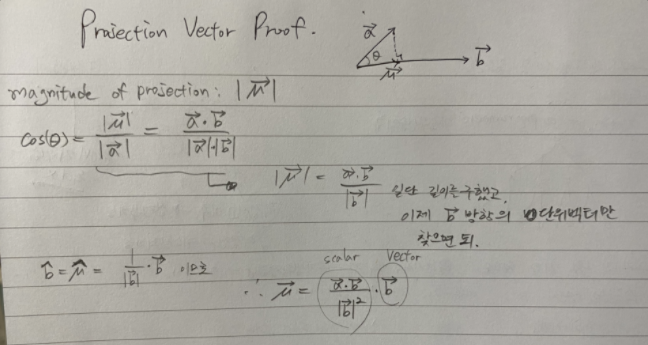 Projection Vector Proof.
a⃗ θ μ⃗ b⃗
magnitude of projection: |μ⃗|
cos(θ) = |μ⃗| / |a⃗| = a⃗·b⃗ / |a⃗|·|b⃗|
|μ⃗| = a⃗·b⃗ / |b⃗| 일단 길이를 구했고,
이제 b⃗ 방향의 단위벡터만
찾으면 돼.
b̂ = μ̂ = 1/|b⃗| · b⃗ 이므로
scalar vector
∴ μ⃗ = a⃗·b⃗ / |b⃗|² · b⃗